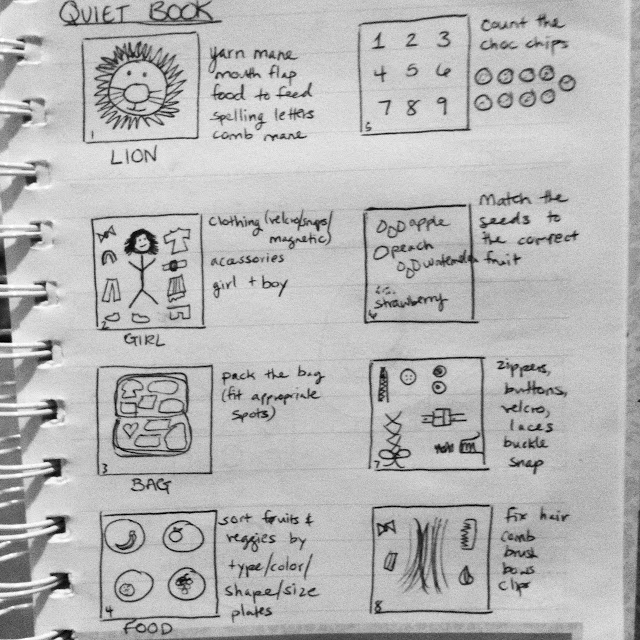 QUIET BOOK
1
LION
yarn mane
mouth flap
food to feed
spelling letters
comb mane
2
GIRL
clothing (velcro/snaps/
magnetic)
acassories
girl + boy
3
BAG
pack the bag
(fit appropriate
spots)
4
FOOD
sort fruits &
veggies by
type/color/
shape/size
plates
1 2 3
4 5 6
7 8 9
5
count the
choc chips
apple
peach
watermelon
strawberry
6
Match the
seeds to
the correct
fruit
7
zippers,
buttons,
velcro,
laces
buckle
snap
8
Fix hair
comb
brush
bows
clips